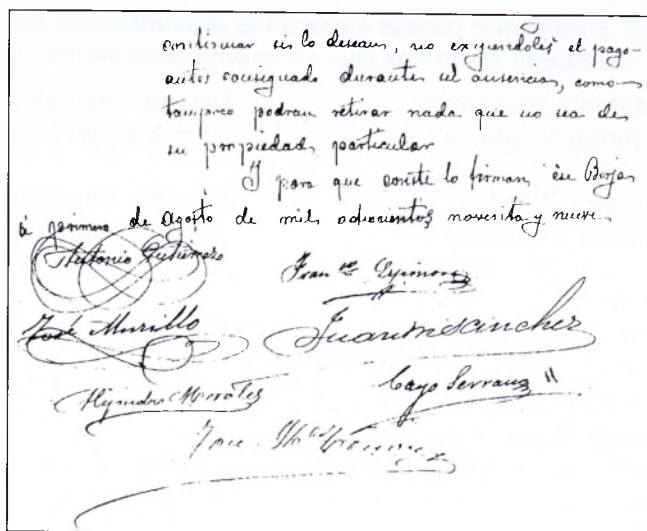 continuar si lo desean, no exijiendoles el pago
antes consignado durante su ausencia, como
tampoco podran retirar nada que no sea de
su propiedad particular
Y para que conste lo firman en Borja
á primero de Agosto de mil ochocientos noventa y nueve.
Antonio Gutierrez
Franco
José Murillo
Juan Sanchez
Alejandro Morales
Cayo Serrano
Jose